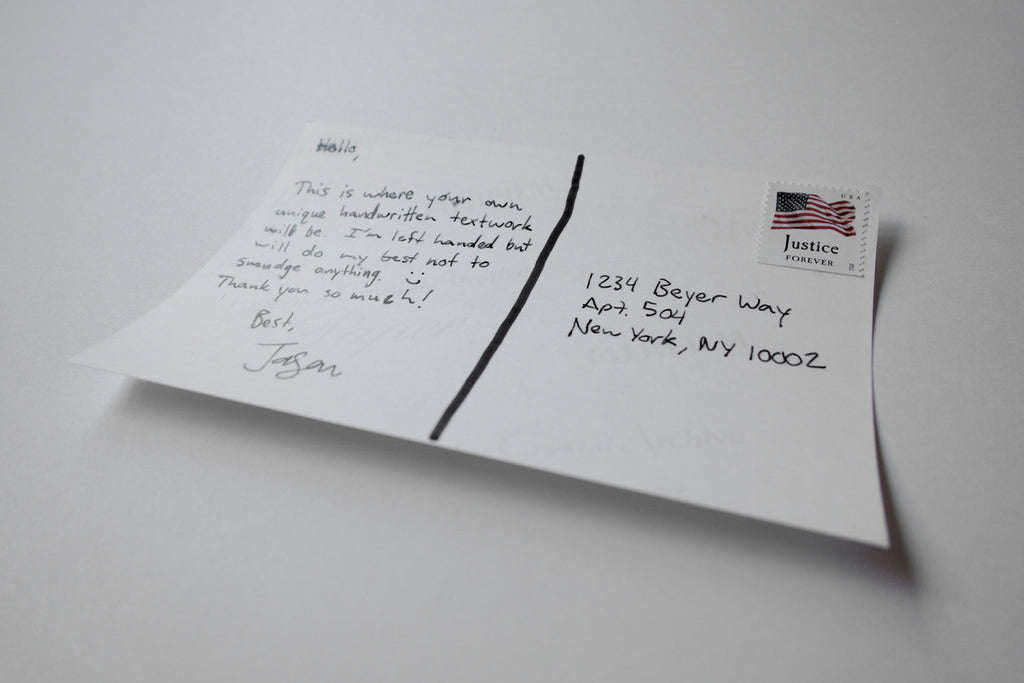 Hello,
This is where your own
unique handwritten textwork
will be. I'm left handed but
will do my best not to
smudge anything. :)
Thank you so much!
Best,
Jason
USA
Justice
FOREVER
1234 Beyer Way
Apt. 504
New York, NY 10002